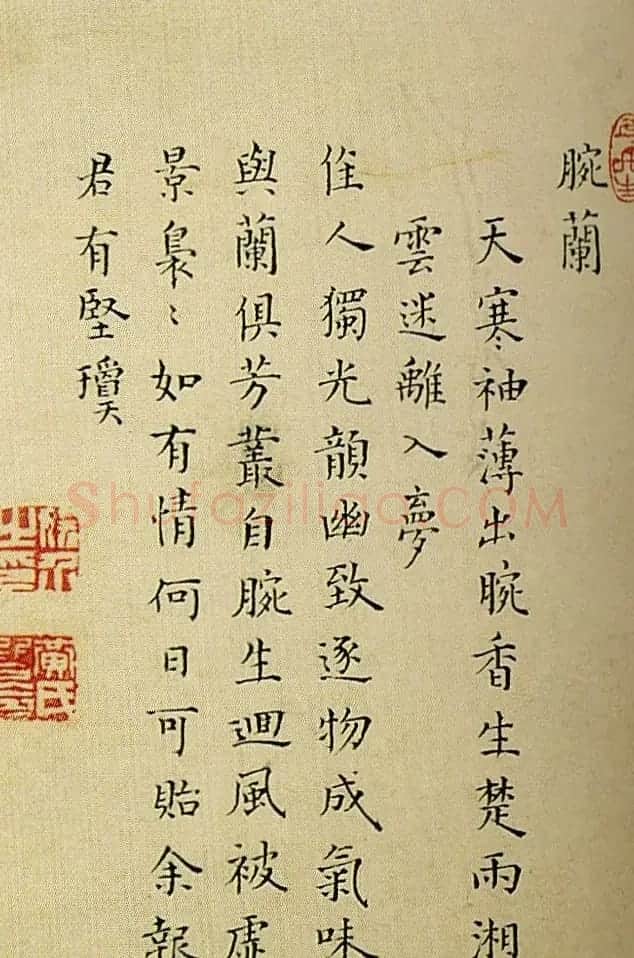 腕蘭
天寒袖薄出腕香生楚雨湘
雲迷離入夢
佳人獨光韻幽致逐物成氣味
與蘭俱芳叢自腕生迴風被虛
景裊〻如有情何日可貽余報
君有堅瓊
黃氏
Shufaziliao.COM